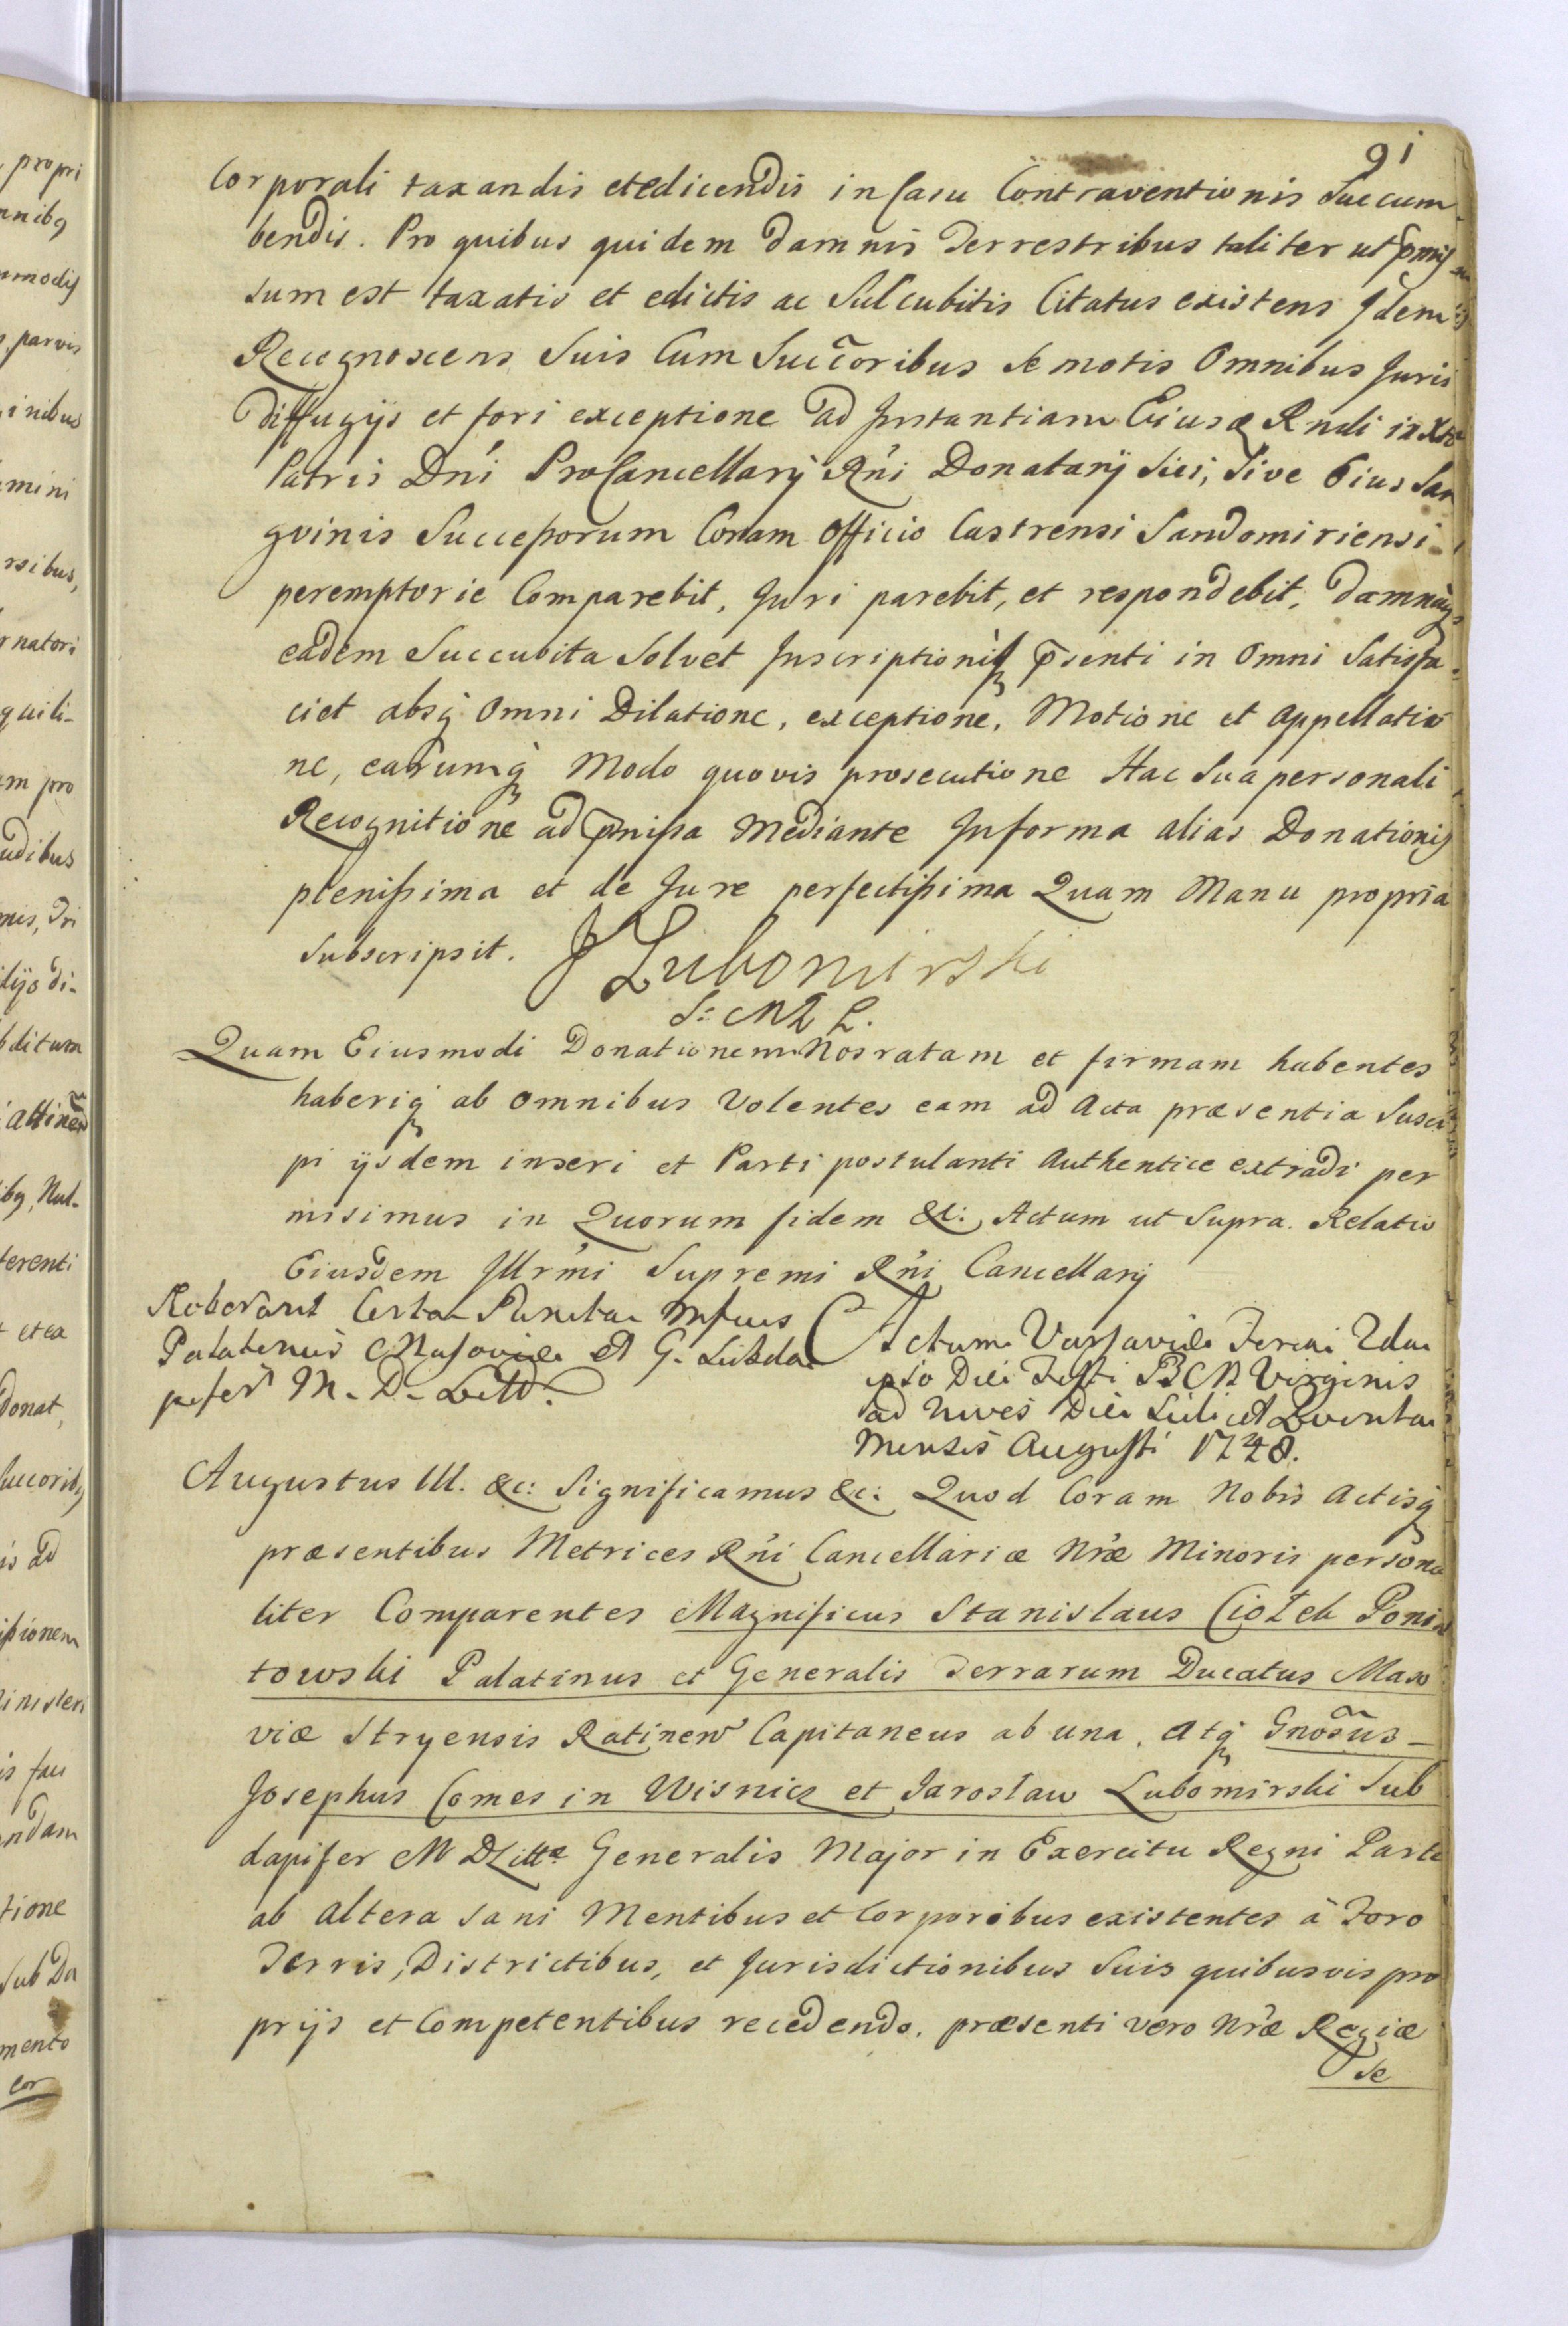 91
Corporali taxandis et edicendis in Casu Contraventionis Succum-
bendis. Pro quibus quidem damnis Terrestribus taliter ut pmis-
sum est taxatis et edictis ac Succubitis Citatus existens Idem
Recognoscens Suis Cum Succoribus Semotis Omnibus Juris
diffugijs et fori exceptione ad Instantiam Eiusd Rndi in Xto
Patris Dni ProCancellarij Rni Donatarij Sui, Sive Eius San
gvinis Successorum Coram Officio Castrensi Sandomiriensi
peremptorie Comparebit, Juri parebit, et respondebit, damnaq
eadem Succubita Solvet Inscriptioniq psenti in Omni Satisfa-
ciet absq Omni Dilatione, exceptione, Motione et Appellatio
ne, earumq Modo quovis prosecutione Hac Sua personali
Recognitione ad pmissa Mediante In forma alias Donationis
plenissima et de Jure perfectissima Quam Manu propria
Subscripsit. J Lubomirski
Quam Eiusmodi Donationem Nos ratam et firmam habentes
haberiq ab Omnibus Volentes eam ad Acta præsentia Susci
pi ijsdem inseri et Parti postulanti Authentice extradi per
misimus in Quorum fidem &c: Actum ut Supra. Relatio
Eiusdem Illrmi Supremi Rni Cancellarij
Roborant Certa Puncta
Palatinus Masoviæ et G.
M. D. Litt.
Actum Varsaviæ Feria 2da
ipso Die Festi BM Virginis
ad Nives Die Scilicet Quinta
Mensis Augusti 1748.
Augustus III. &c: Significamus &c: Quod Coram Nobis Actisq
præsentibus Metrices Rni Cancellariæ Nræ Minoris persona
liter Comparentes Magnificus Stanislaus Ciołek Ponia
towski Palatinus et Generalis Terrarum Ducatus Maso
viæ Stryensis Ratinen Capitaneus ab una, Atq Gnosus -
Josephus Comes in Wisnicz et Jarosław Lubomirski Sub
dapifer M D Litt Generalis Major in Exercitu Regni Parte
ab altera Sani Mentibus et Corporibus existentes à Foro
Terris, Districtibus, et Jurisdictionibus Suis quibusvis pro
prijs et Competentibus recedendo, præsenti vero Nræ Regiæ
Se